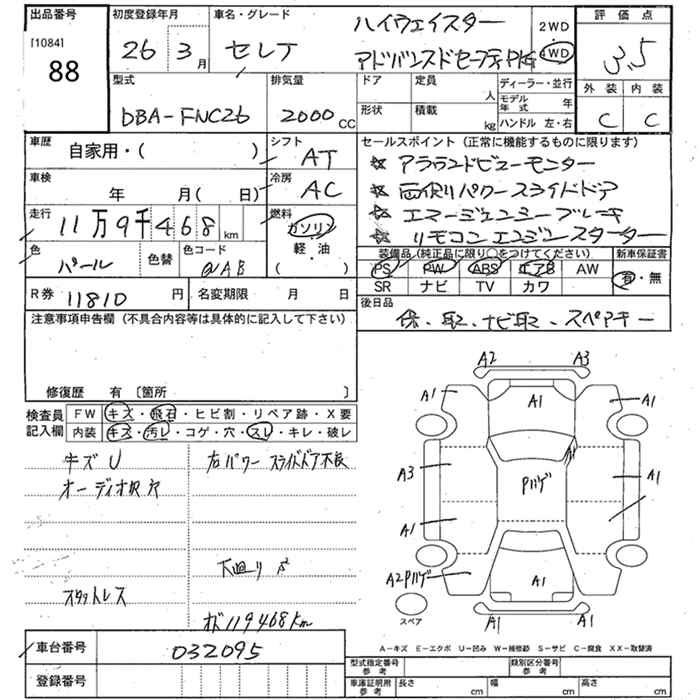 出品番号
[1084]
88
初度登録年月
26 3月
車名・グレード
セレナ
ハイウェイスター
アドバンスドセーフティPKG
2WD
4WD
評価点
3.5
外装 内装
C C
型式
DBA-FNC26
排気量
2000CC
ドア
定員
人
形状
積載
kg
ディーラー・並行
モデル年式 年
ハンドル 左・右
車歴
自家用・( )
シフト
AT
車検
年 月( 日)
冷房
AC
走行
11万9千468km
燃料
ガソリン
軽・油
( )
色
パール
色替
色コード
QAB
R券 11810円
名変期限 月 日
セールスポイント(正常に機能するものに限ります)
★ アラウンドビューモニター
★ 両側パワースライドドア
★ エマージェンシーブレーキ
★ リモコンエンジンスターター
装備品(純正品に限り○をつけてください)
新車保証書
PS PW ABS エアB AW
SR ナビ TV カワ
有・無
後日品
保、取、ナビ取、スペアキー
注意事項申告欄(不具合内容等は具体的に記入して下さい)
修復歴 有 〔箇所 〕
検査員記入欄
FW キズ・飛石・ヒビ割・リペア跡・X要
内装 キズ・汚レ・コゲ・穴・スレ・キレ・破レ
キズU
オーディオ取穴
スタットレス
右パワースライドドア不良
下廻りS2
オド119468km
車台番号
032095
登録番号
A2 A3
A1 A1 A1
A1
A3 Pハゲ A1
A1
A2Pハゲ A1
A1 A1
スペア
A-キズ E-エクボ U-凹み W-補修跡 S-サビ C-腐食 XX-取替済
型式指定番号
参考
類別区分番号
参考
車庫証明用
参考
長さ cm
幅 cm
高さ cm